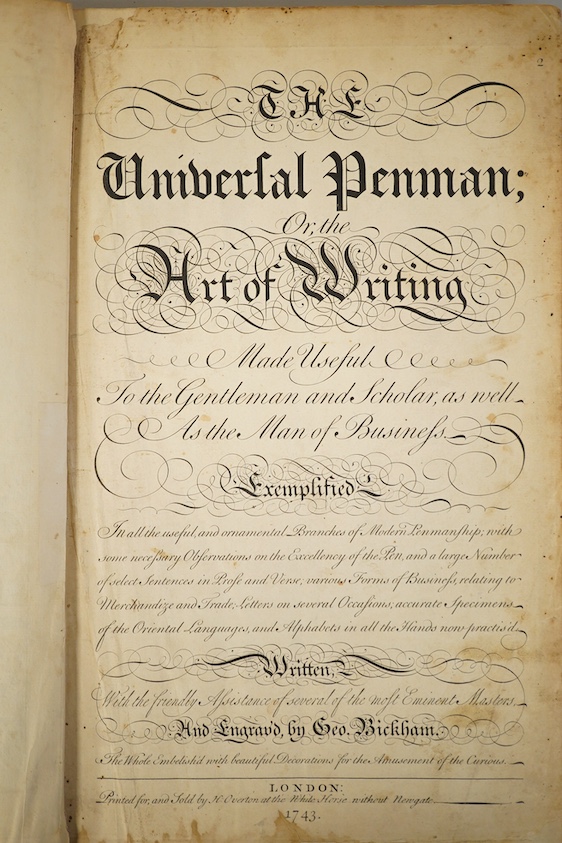 2
THE
Univerſal Penman;
Or, the
Art of Writing
Made Uſeful
To the Gentleman and Scholar, as well
As the Man of Buſineſs.
Exemplified
In all the useful, and ornamental Branches of Modern Penmanship; with
some neceſsary Obſervations on the Excellency of the Pen, and a large Number
of select Sentences in Proſe and Verse; various Forms of Buſineſs, relating to
Merchandize and Trade; Letters on several Occaſions, accurate Specimens
of the Oriental Languages, and Alphabets in all the Hands now practis'd.
Written,
With the friendly Aſsistance of several of the moſt Eminent Masters
And Engrav'd, by Geo. Bickham.
The Whole Embelish'd with beautiful Decorations for the Amusement of the Curious.
LONDON:
Printed for, and Sold by H. Overton at the White Horse without Newgate
1743.